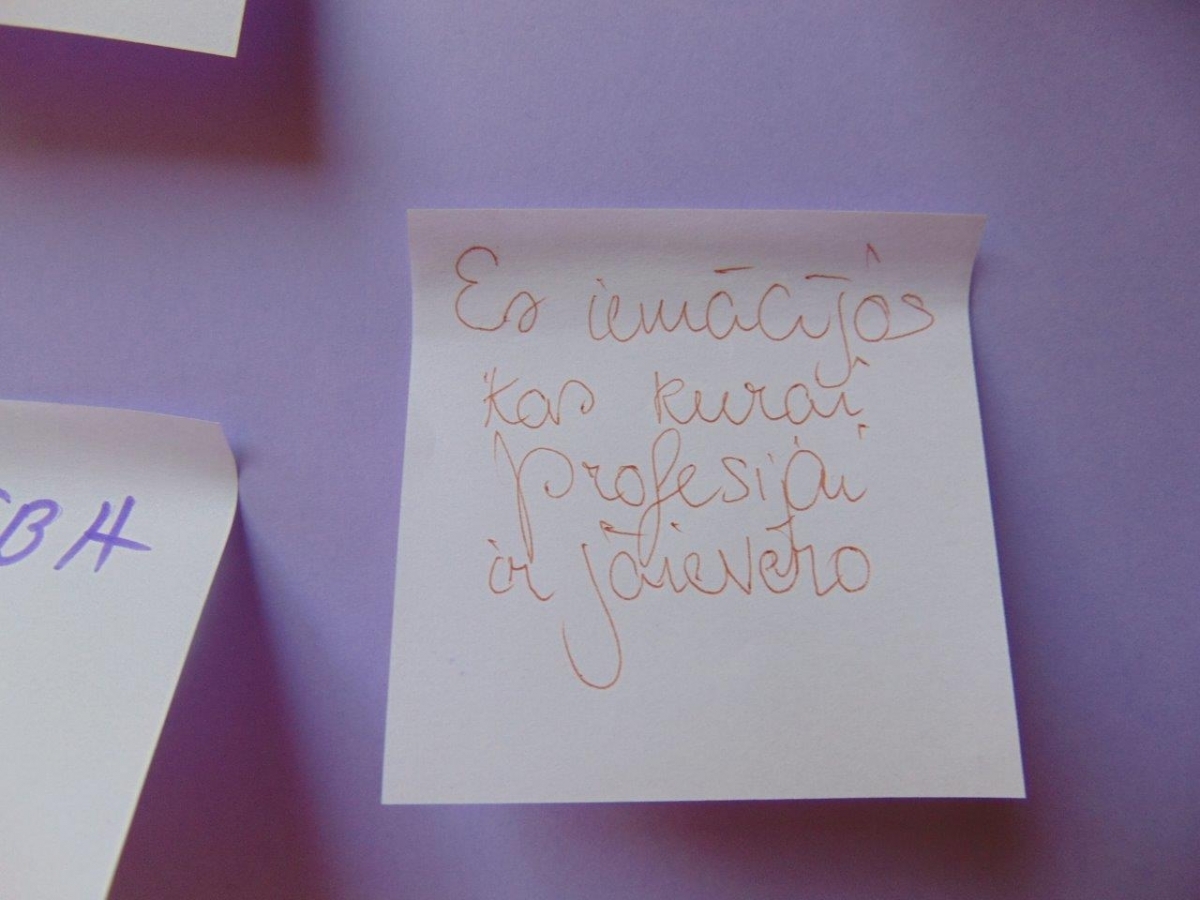 Es iemācījos
kas kurai
profesijai
ir jāievēro
ВН